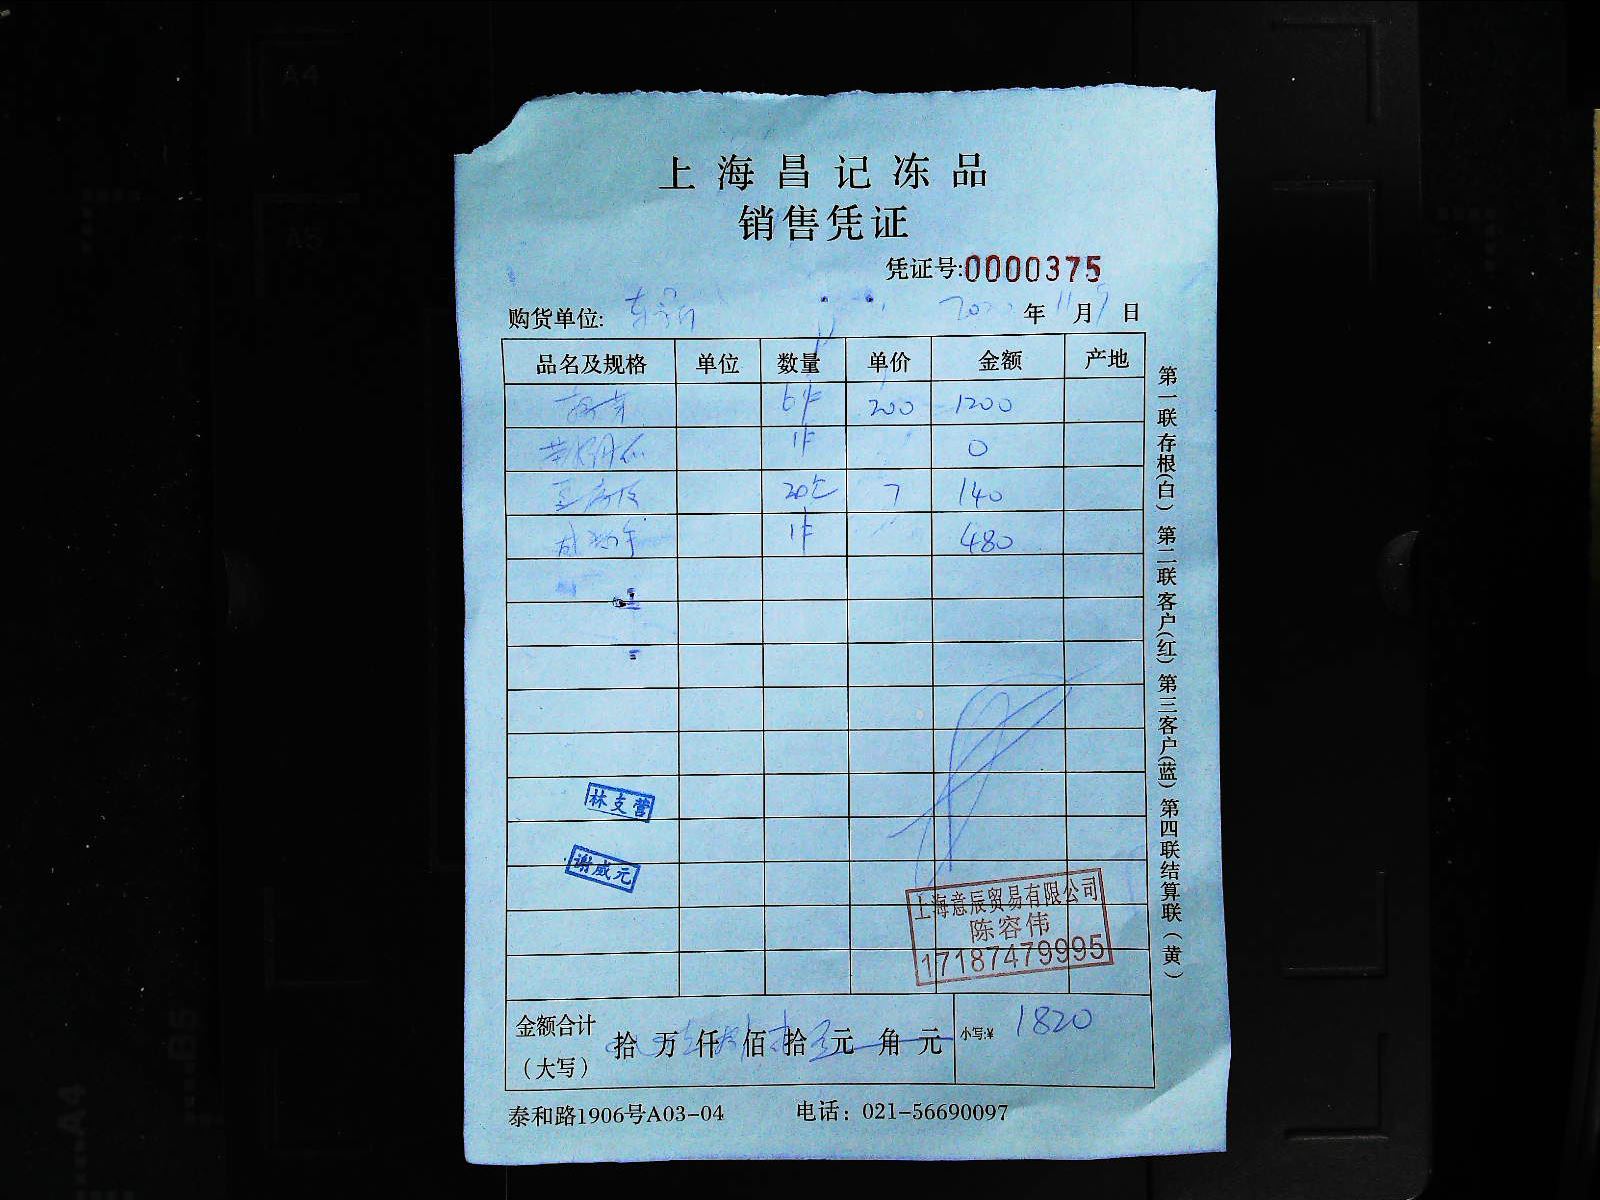 上海昌记冻品
销售凭证
凭证号:0000375
购货单位: 年 11月9日
品名及规格 单位 数量 单价 金额 产地
6件 200 1200
1件 0
20包 7 140
1件 480
林支营
谢威元
上海意辰贸易有限公司
陈容伟
17187479995
金额合计（大写） 拾 万 仟 佰 拾 元 角 元 小写:¥ 1820
泰和路1906号A03-04 电话：021-56690097
第一联存根(白) 第二联客户(红) 第三客户(蓝) 第四联结算联(黄)
A4
A5
B5
A4